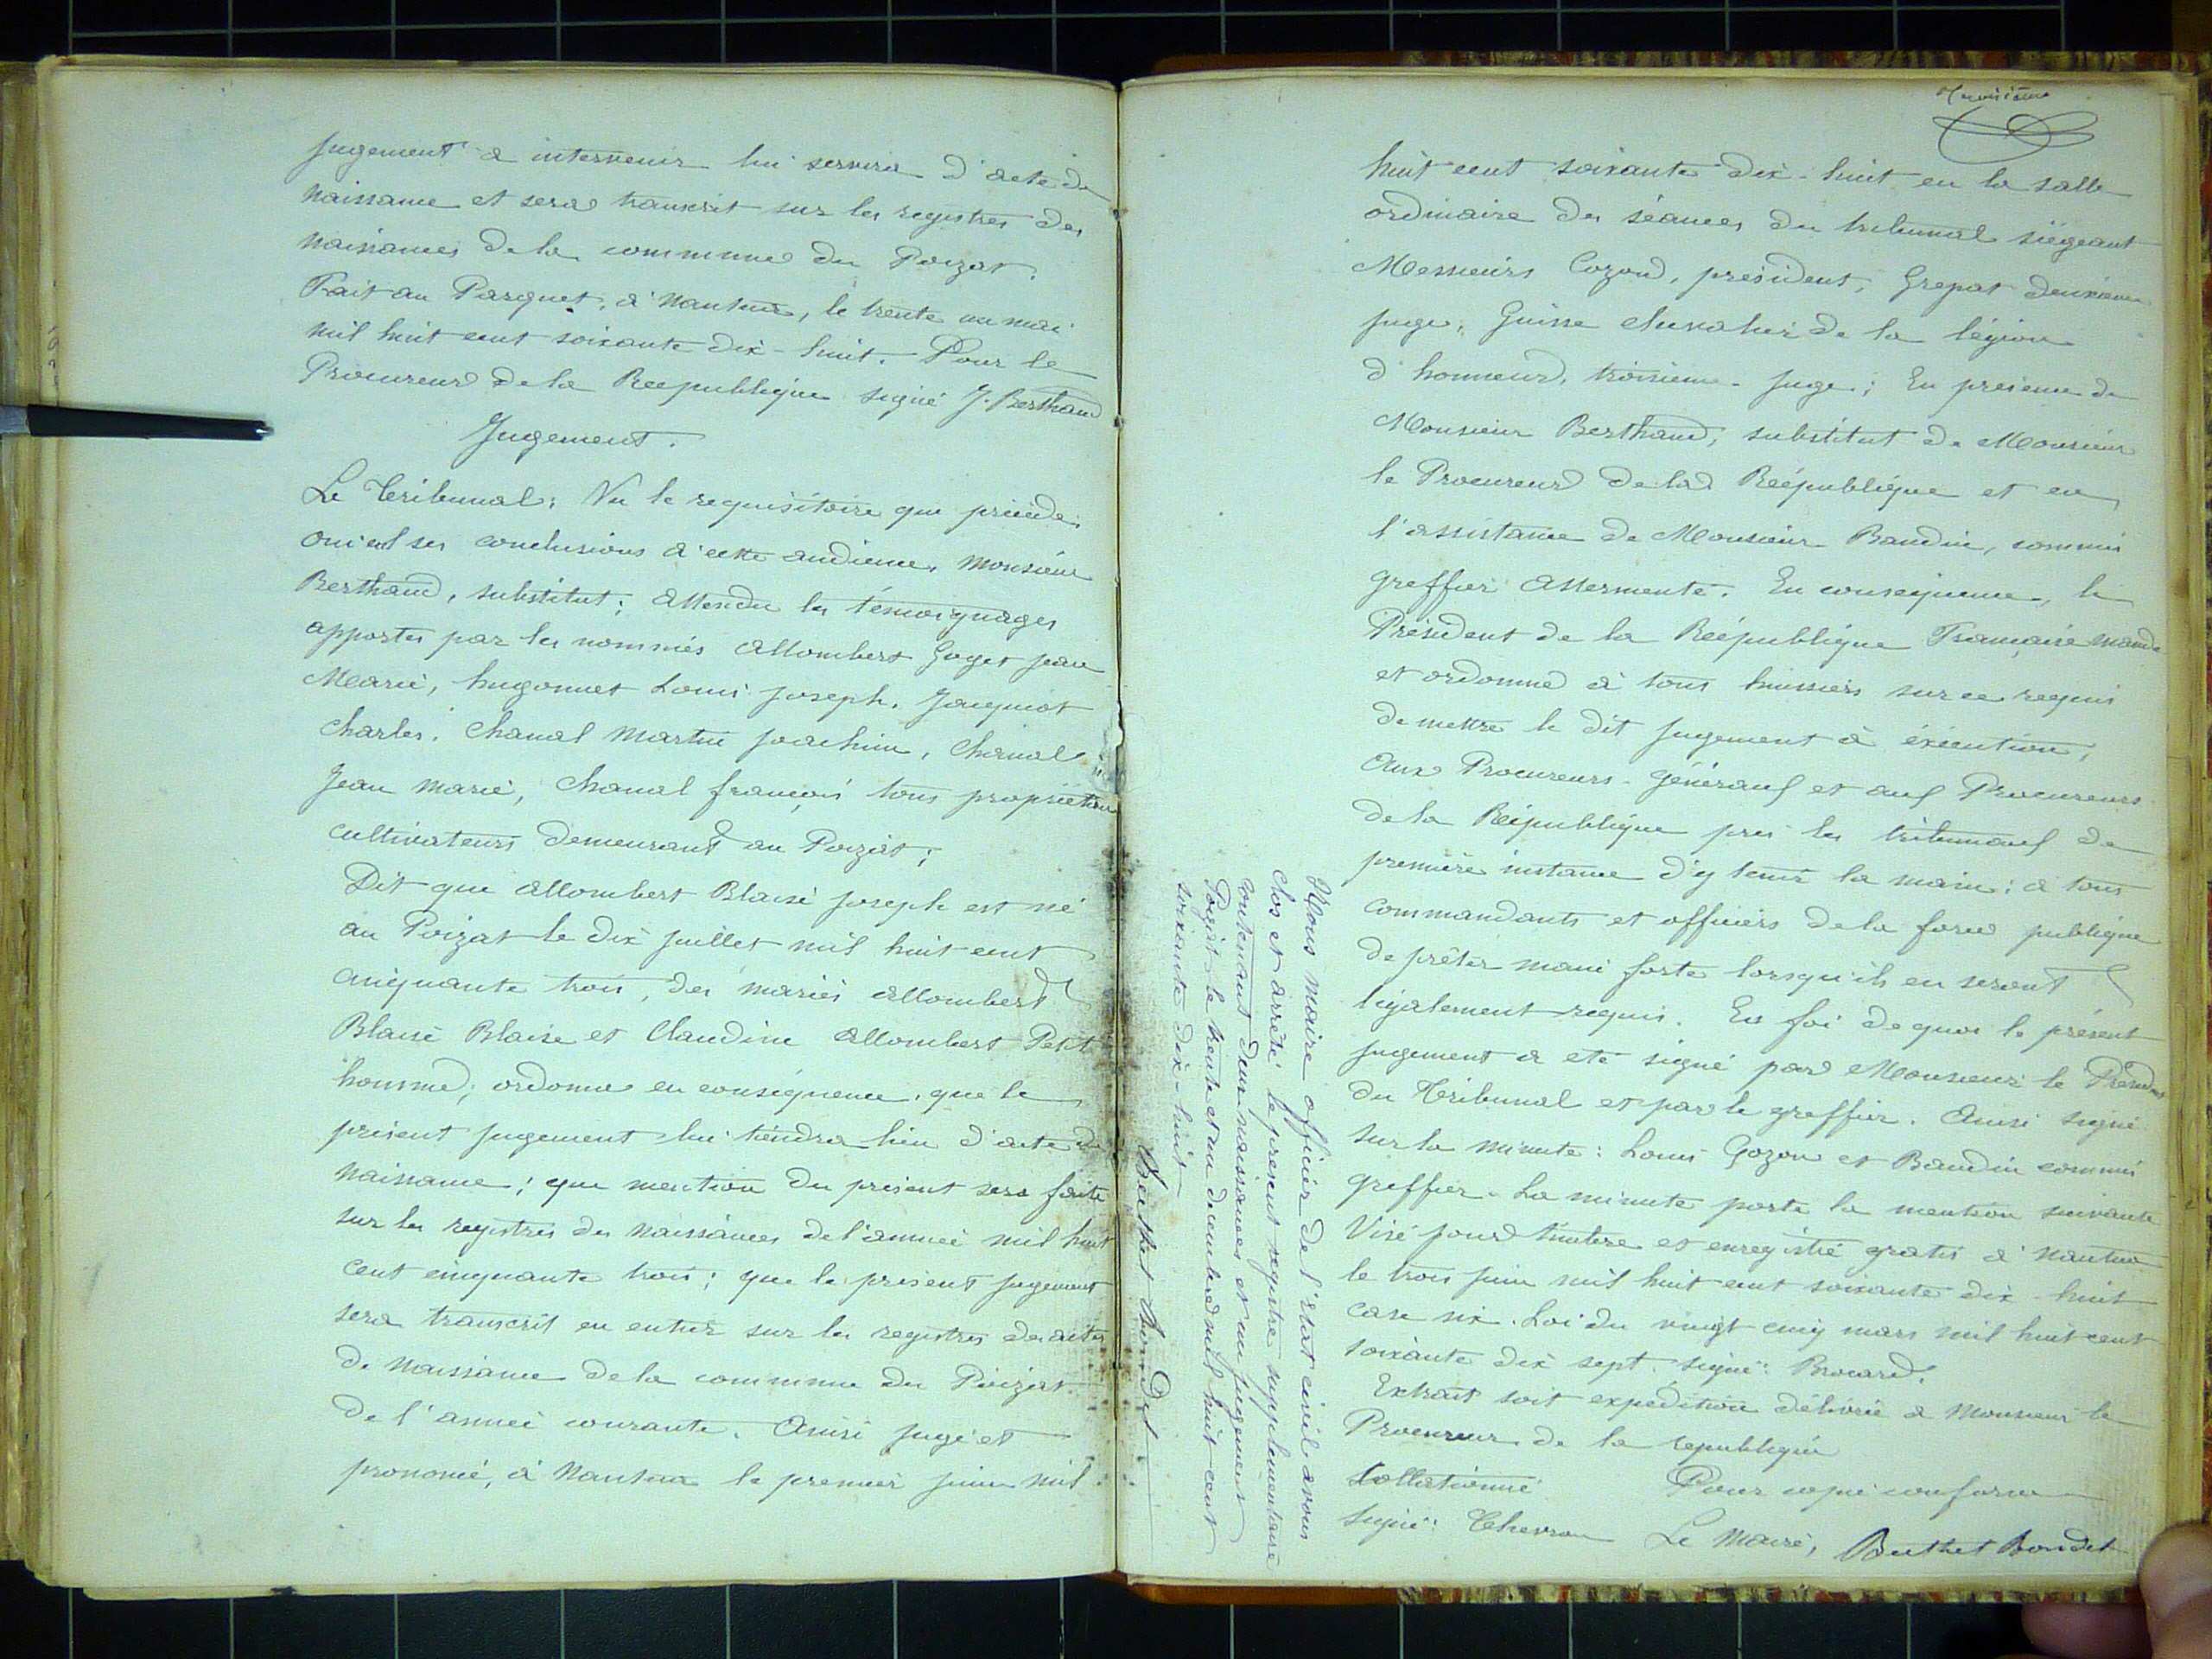 jugement à intervenir lui servira d'acte de
naissance et sera transcrit sur les registres des
naissances de la commune du Poizat.
Fait au Parquet, à Nantua, le trente un mai
mil huit cent soixante dix-huit. Pour le
Procureur de la Reépublique signé J. Berthaud
Jugement.
Le Tribunal; Vu le requisitoire que précède;
oui ses conclusions à cette audience, Monsieur
Berthaud, substitut; attendu les témoignages
apportés par les nommés Allombert Goget Jean
Marie, hugonnet Louis Joseph, Jacquiot
Charles, Chanal Martin Joachim, Chanal
Jean Marie, Chanal françois tous propriétaires
cultivateurs demeurant au Poizat;
Dit que Allombert Blaise Joseph est né
au Poizat le dix juillet mil huit cent
cinquante trois, des mariés Allombert
Blaise Blaise et Claudine Allombert Petit
homme; ordonne en conséquence, que le
présent jugement lui tiendra lieu d'acte de
naissance; que mention du présent sera faite
sur les registres des naissances de l'année mil huit
cent cinquante trois; que le présent jugement
sera transcrit en entier sur les registres des actes
de naissance de la commune du Poizat
de l'année courante. Ainsi jugé et
prononcé, à Nantua le premier juin mil
huit cent soixante dix-huit en la salle
ordinaire des séances du tribunal siégeant
Messieurs Cozon, président, Grepat deuxième
juge, Guisse chevalier de la légion
d'honneur, troisième juge; En présence de
Monsieur Berthaud, substitut de Monsieur
le Procureur de la Reépublique et en
l'assistance de Monsieur Baudin, commis
greffier assermenté. En conséquence, le
Président de la Reépublique Française mande
et ordonne à tous huissiers sur ce requis
de mettre le dit jugement à éxécution,
Aux Procureurs-Généraux et aux Procureurs
de la République près les tribunaux de
première instance d'y tenir la main; à tous
commandants et officiers de la force publique
de prêter main forte lorsqu'ils en seront
légalement requis. En foi de quoi le présent
jugement a été signé par Monsieur le Président
du Tribunal et par le greffier. Ainsi signé
sur la minute: Louis Gozon et Baudin commis
greffier. La minute porte la mention suivante
Visé pour timbre et enregistré gratis à Nantua
le trois juin mil huit cent soixante dix-huit
case six. Loi du vingt cinq mars mil huit cent
soixante dix sept. signé: Brocard.
Extrait soit expédition délivrée à Monsieur le
Procureur de la republique
Collationné Pour copie conforme
Signé: Thevron Le Maire, Berthet Bondet
Nous maire officier de l'état civil avons
clos et arrêté le présent registre supplémentaire
contenant deux naissances et un jugement
Poizat le trente et un décembre mil huit cent
soixante dix-huit
Berthet Bondet